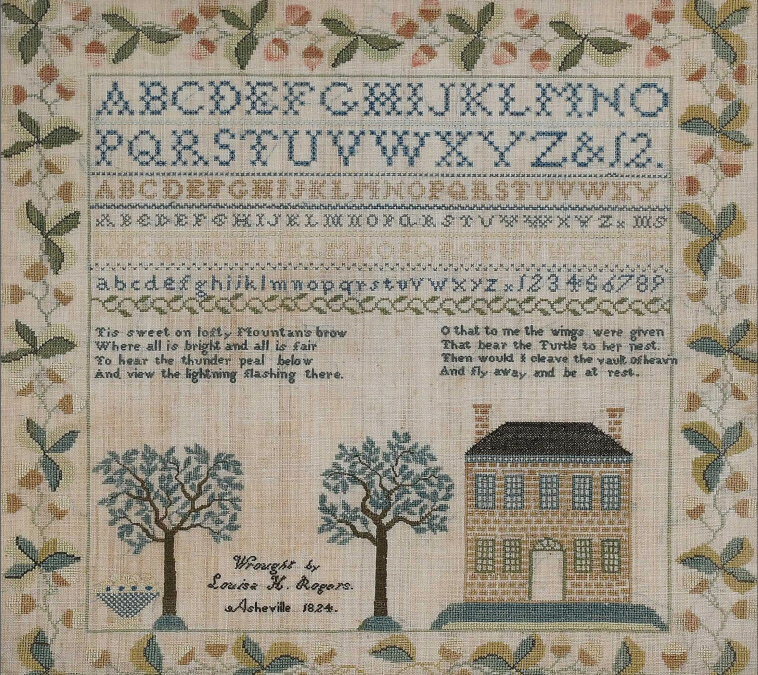 ABCDEFGHIJKLMNO
PQRSTUVWXYZ&12.
ABCDEFGHIJKLMNOPQRSTUVWXY
ABCDEFGHIJKLMNOPQRSTUVWXYZx MS
abcdefghijklmnopqrstuvwxyzx123456789
Tis sweet on lofty Mountan's brow
Where all is bright and all is fair
To hear the thunder peal below
And view the lightning flashing there.
O that to me the wings were given
That bear the Turtle to her nest.
Then would I cleave the vault of heavn
And fly away and be at rest.
Wrought by
Louisa H. Rogers.
Asheville 1824.